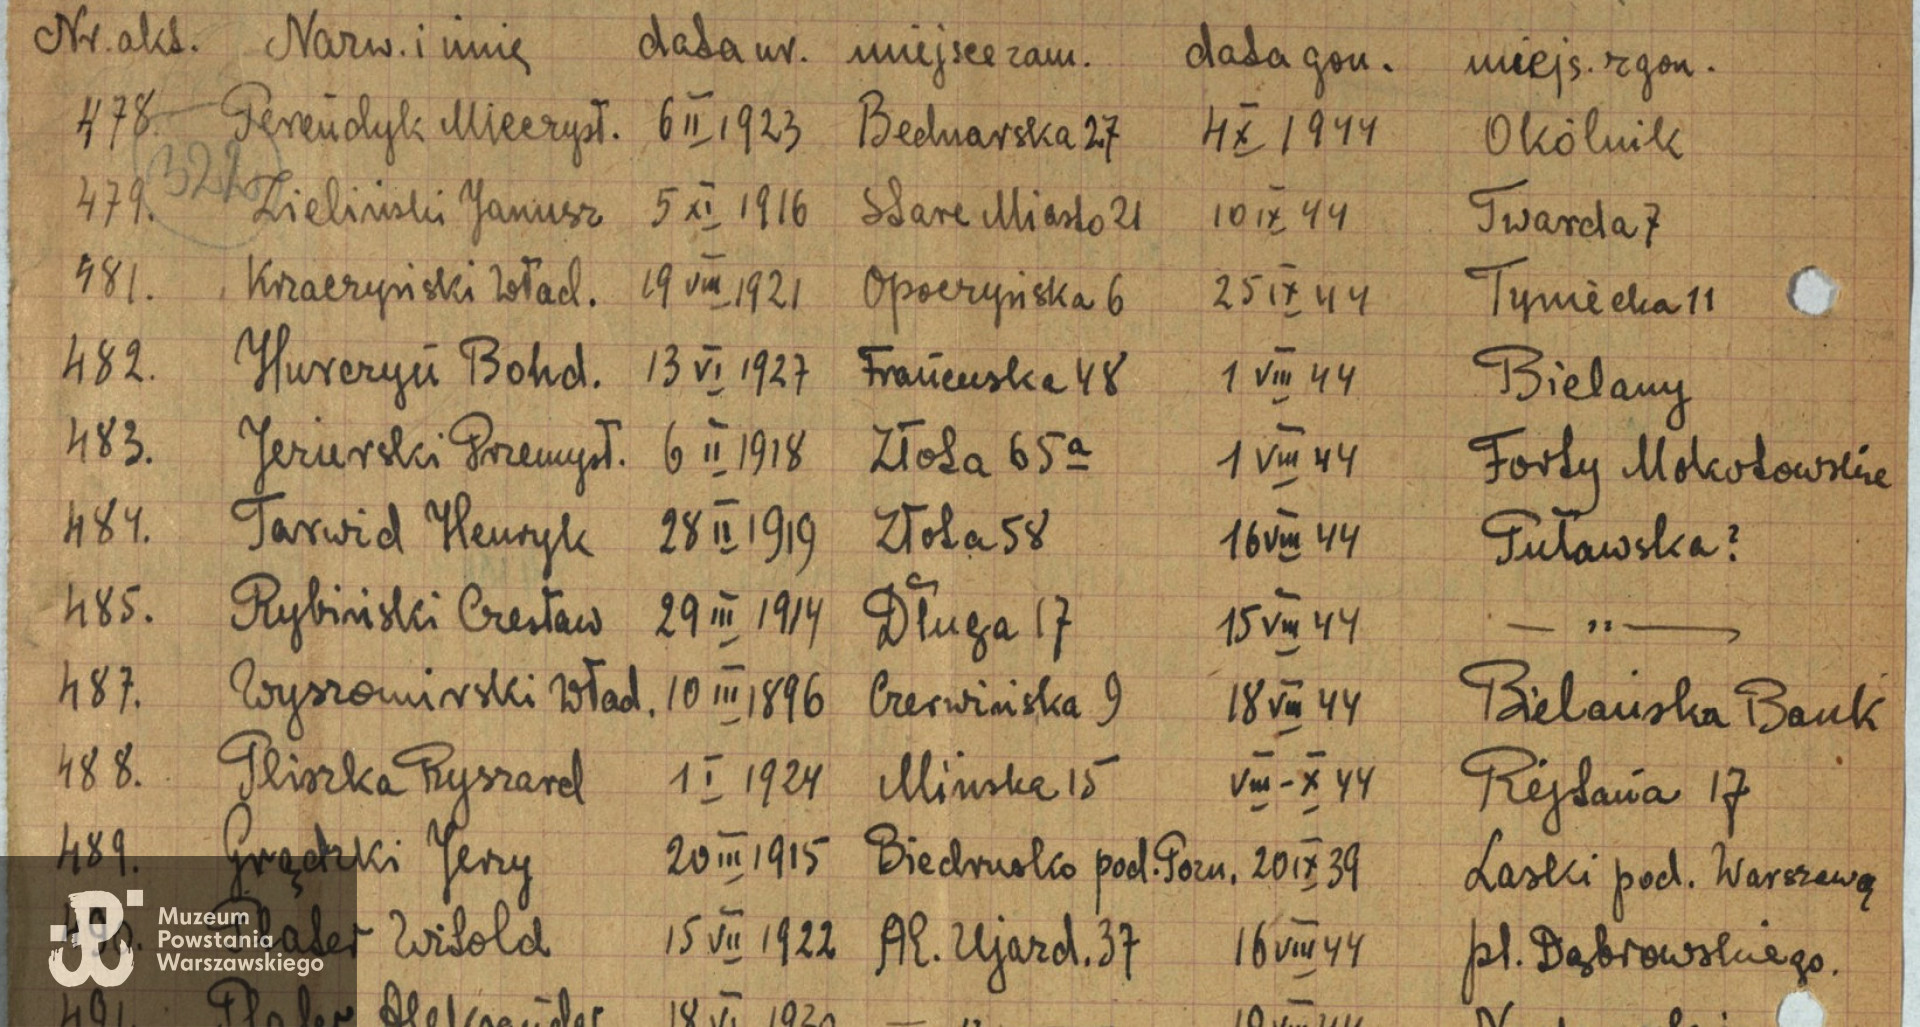 Nr. akt. Nazw. i imię data ur. miejsce zam. data zgon. miejs. zgon.
478. Pereńdyk Mieczysł. 6 II 1923 Bednarska 27 4 X 1944 Okólnik
322
479. Zieliński Janusz 5 XI 1916 Stare Miasto 21 10 IX 44 Twarda 7
481. Kraczyński Wład. 19 VIII 1921 Opoczyńska 6 25 IX 44 Tyniecka 11
482. Hurczyń Bohd. 13 VI 1927 Francuska 48 1 VIII 44 Bielany
483. Jezierski Przemysł. 6 II 1918 Złota 65a 1 VIII 44 Forty Mokotowskie
484. Tarwid Henryk 28 II 1919 Złota 58 16 VIII 44 Puławska?
485. Rybiński Czesław 29 III 1914 Długa 17 15 VIII 44 — „ —
487. Wyszomirski Wład. 10 III 1896 Czerwińska 9 18 VIII 44 Bielańska Bank
488. Pliszka Ryszard 1 I 1924 Mińska 15 VIII - X 44 Rejtana 17
489. Grądzki Jerzy 20 III 1915 Biedrusko pod. Pozn. 20 IX 39 Laski pod. Warszawą
490. Plater Witold 15 VII 1922 Al. Ujazd. 37 16 VIII 44 pl. Dąbrowskiego.
491. Plater Aleksander 18 VI 1930 — „ 19 VIII 44
Muzeum
Powstania
Warszawskiego